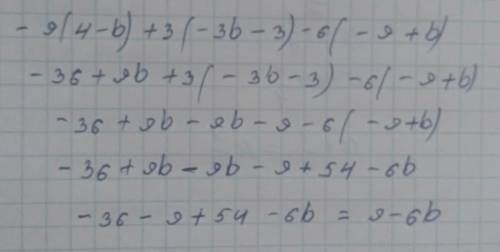 - 9(4-b) +3(-3b-3)-6(-9+b)
-36+9b +3(-3b-3) -6(-9+b)
-36+9b-9b-9-6(-9+b)
-36+9b-9b-9+54-6b
-36-9+54-6b = 9-6b